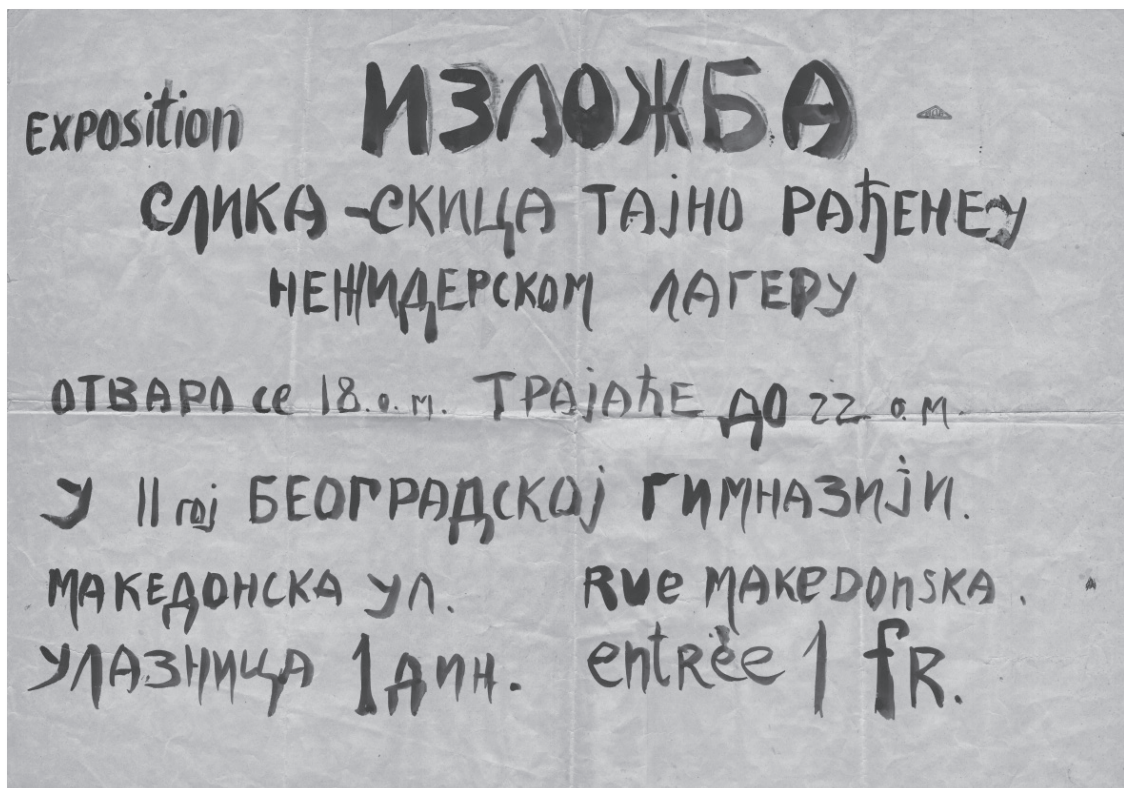 EXPOSITION ИЗЛОЖБА
СЛИКА-СКИЦА ТАЈНО РАЂЕНЕ У
НЕЖИДЕРСКОМ ЛАГЕРУ
ОТВАРА се 18.о.м. ТРАЈАЋЕ ДО 22 о.м.
У II гој БЕОГРАДСКОЈ ГИМНАЗИЈИ.
МАКЕДОНСКА УЛ. RUE MAKEDONSKA.
УЛАЗНИЦА 1 ДИН. entrèe 1 fR.